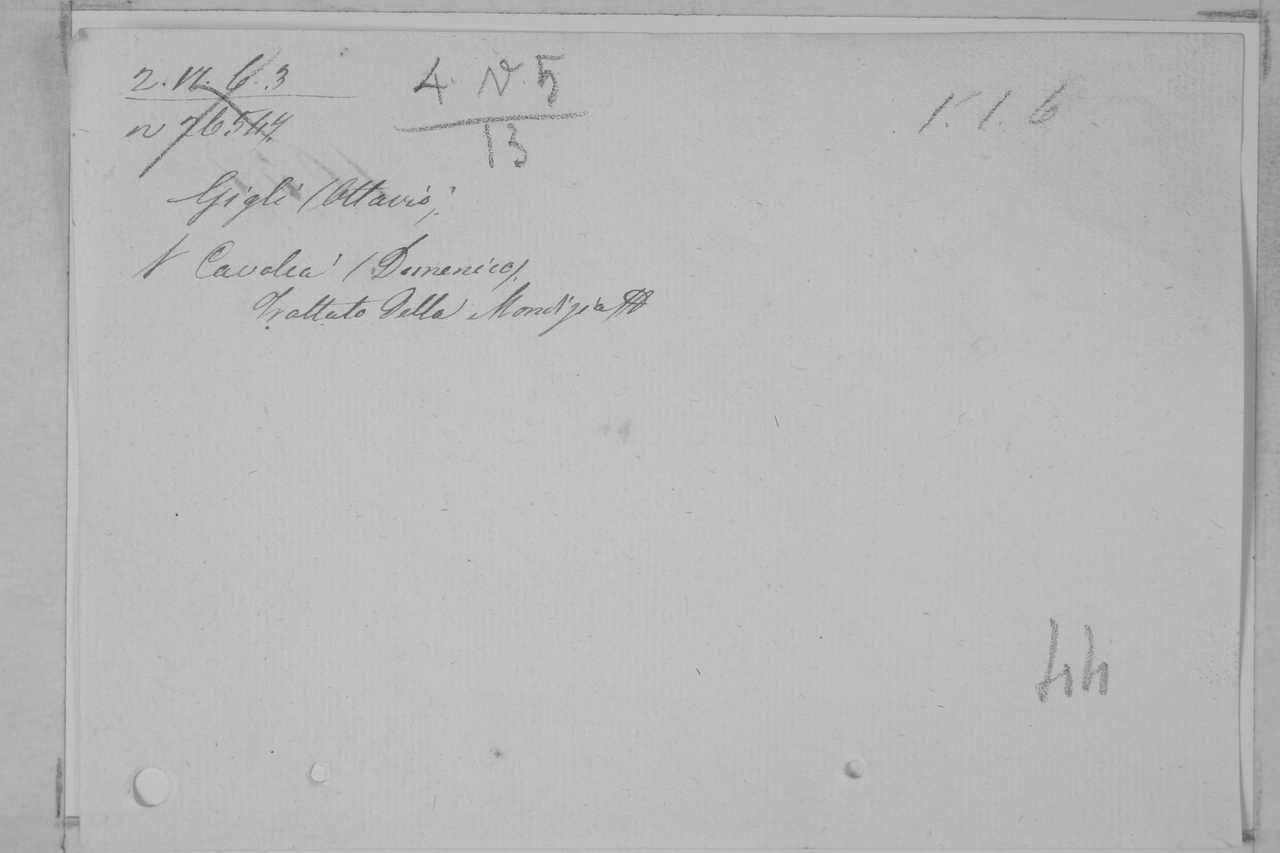 2. VI. C. 3
n 76547
4. N. 5
13
1. 1. 6
Gigli (Ottavio)
V Cavolca (Domenico)
Trattato della Mondizia
44